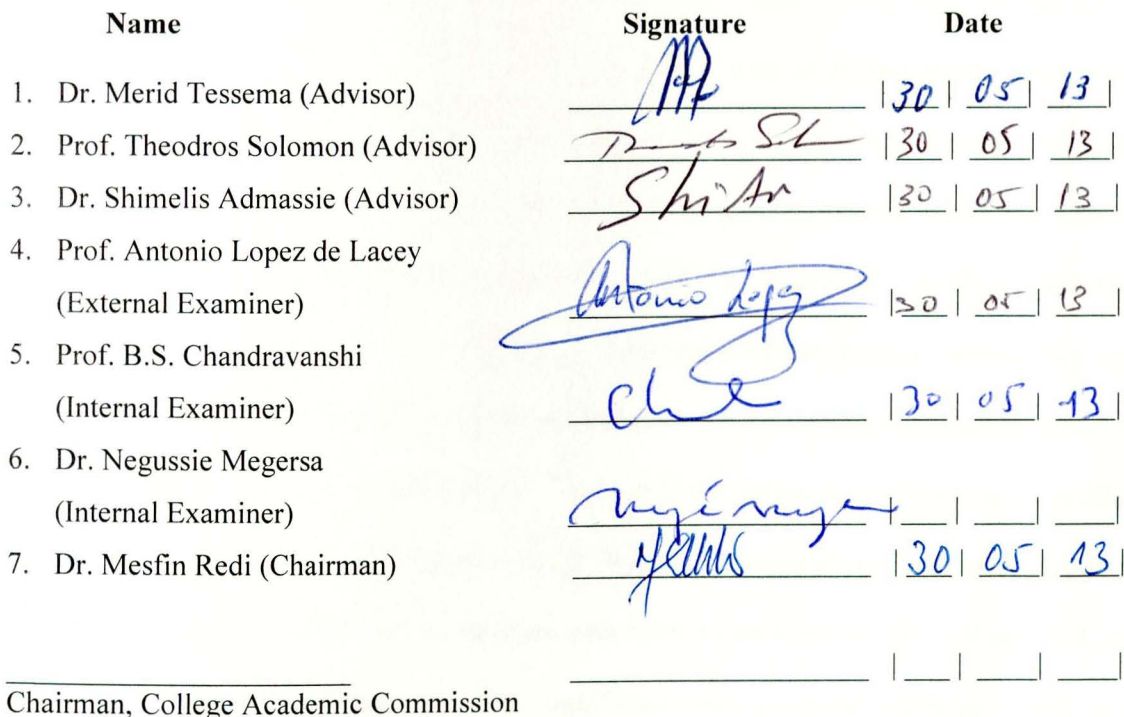 Name Signature Date
1. Dr. Merid Tessema (Advisor) |30| 05| 13|
2. Prof. Theodros Solomon (Advisor) |30| 05| 13|
3. Dr. Shimelis Admassie (Advisor) |30| 05| 13|
4. Prof. Antonio Lopez de Lacey
(External Examiner) Antonio Lopez |30| 05| 13|
5. Prof. B.S. Chandravanshi
(Internal Examiner) |30| 05| 13|
6. Dr. Negussie Megersa
(Internal Examiner)
7. Dr. Mesfin Redi (Chairman) |30| 05| 13|
Chairman, College Academic Commission